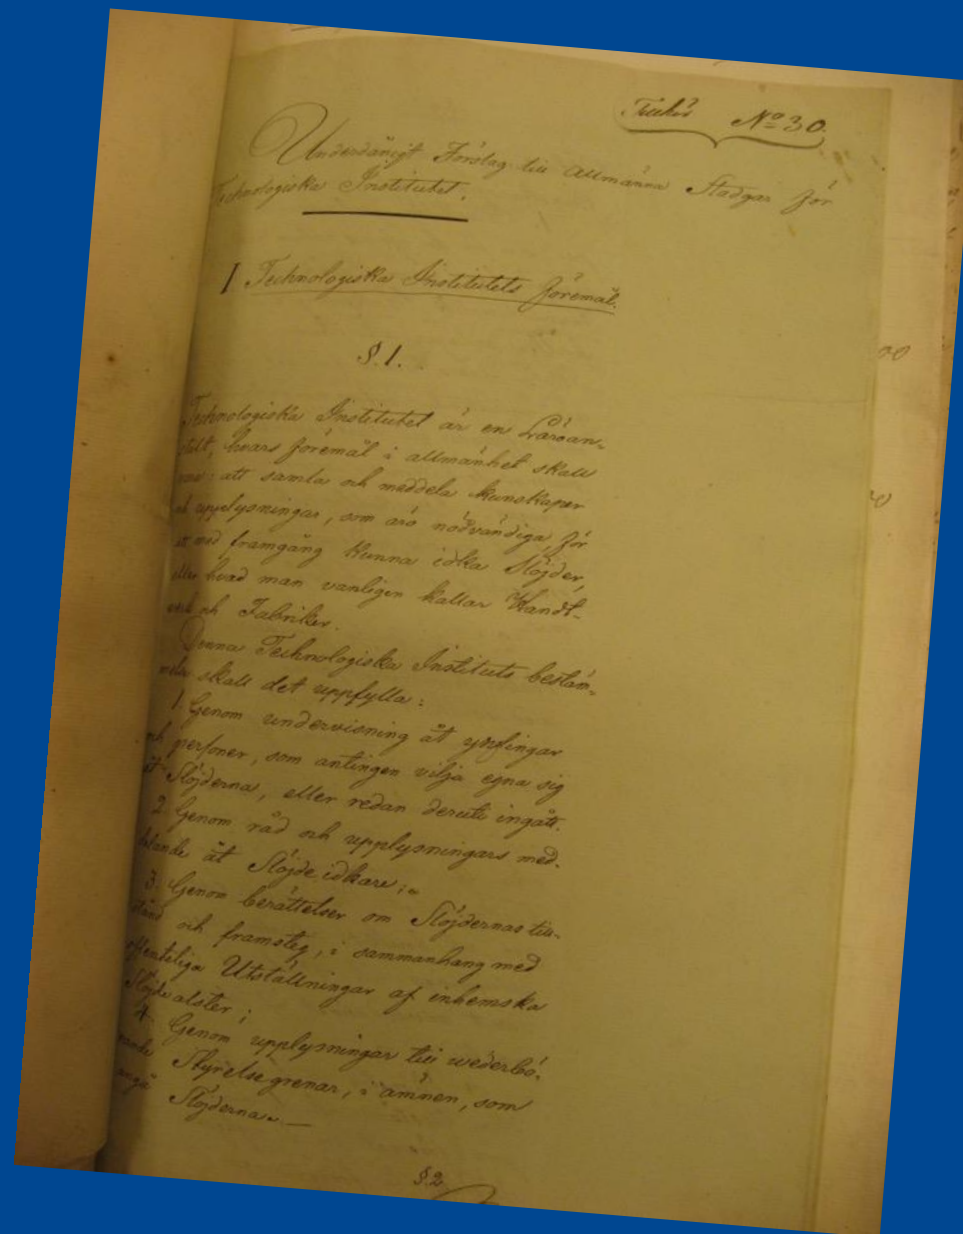 No 30.
Underdånigt Förslag till Allmänna Stadgar för
Technologiska Institutet.
I Technologiska Institutets föremål.
§.1.
Technologiska Institutet är en Läroan-
stalt, hvars föremål i allmänhet skall
att samla och meddela kunskaper
och upplysningar, som äro nödvändiga för
att med framgång kunna idka Slöjder,
eller hvad man vanligen kallar Handt-
verk och Fabriker.
Denna Technologiska Instituts bestäm-
melse skall det uppfylla:
1. Genom undervisning åt ynglingar
och personer, som antingen vilja egna sig
åt Slöjderna, eller redan deruti ingått.
2. Genom råd och upplysningars med-
delande åt Slöjdeidkare;
3. Genom berättelser om Slöjdernas till-
stånd och framsteg, i sammanhang med
offenteliga Utställningar af inhemska
Slöjdealster;
4. Genom upplysningar till wederbö-
rande Styrelsegrenar, i ämnen, som
angå Slöjderna.
§.2.